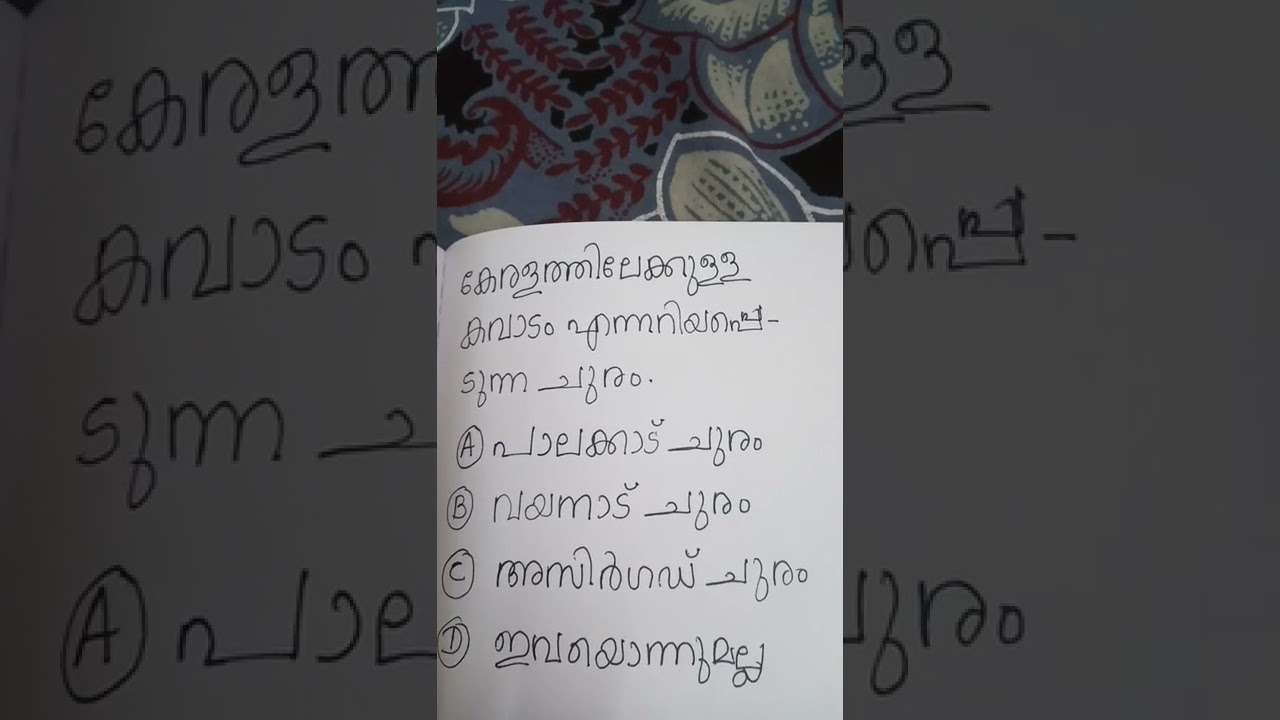 കേരളത്തിലേക്കുള്ള
കവാടം എന്നറിയപ്പെ-
ടുന്ന ചുരം.
Ⓐ പാലക്കാട് ചുരം
Ⓑ വയനാട് ചുരം
Ⓒ അസിർഗഡ് ചുരം
Ⓓ ഇവയൊന്നുമല്ല